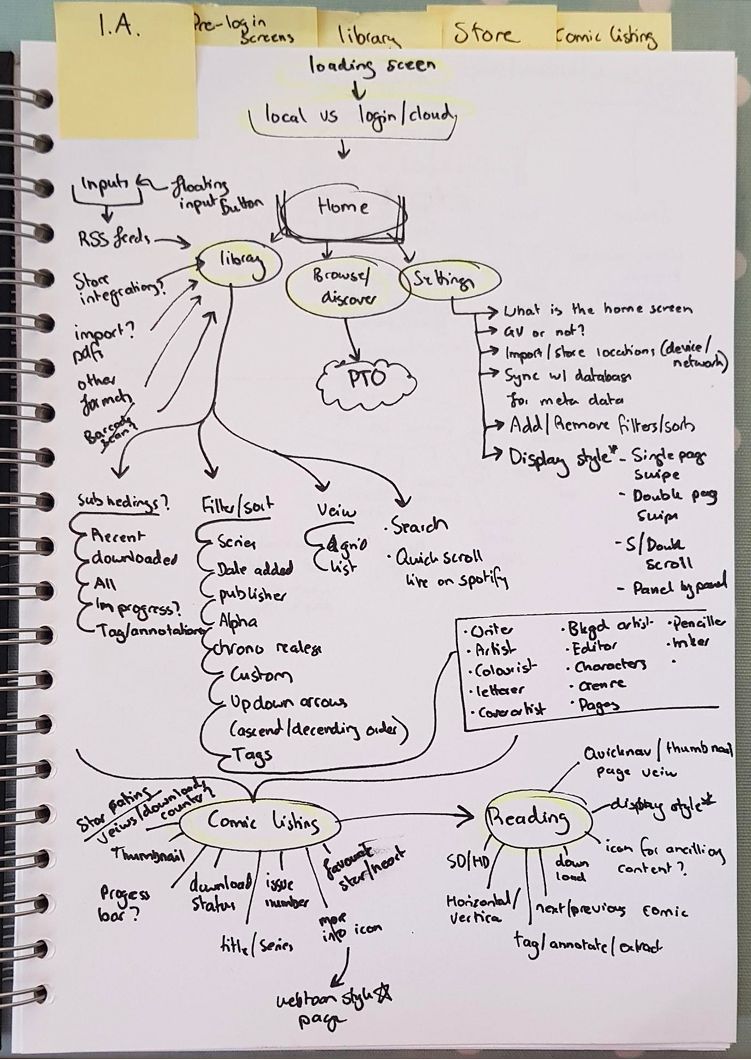 I.A.
Pre-login
screens
library
Store
Comic listing
loading sceen
local vs login/cloud
Inputs
floating
input button
Home
RSS feeds
library
Browse/
discover
Settings
Store
integration?
import?
pdfs
other
formats
Barcode
scan?
PTO
What is the home screen
GV or not?
Import/store locations (device/
network)
Sync w/ database
for meta data
Add/Remove filters/sorts
Display style*
- Single page
swipe
- Double page
swipe
- S/Double
scroll
- Panel by panel
Subhedings?
Recent
downloaded
All
In progress?
Tag/annotations
Filter/sort
Series
Date added
publisher
Alpha
chrono realese
Custom
Up down arrows
(ascend/decending order)
Tags
Veiw
grid
list
· Search
· Quick scroll
like on spotify
· Writer
· Artist
· Colourist
· letterer
· Cover artist
· Bkgd artist
· Editor
· Characters
· Genre
· Pages
· Penciller
· Inker
·
Comic listing
Star rating
veiws/download
counter?
Thumbnail
Progess
bar?
download
status
title/series
issue
number
more
info icon
favourite
star/heart
webtoon style☆
page
Reading
Quicknav/thumbnail
page veiw
display style*
icon for ancilliary
content?
down
load
next/previous comic
tag/annotate/extract
Horizontal/
vertical
SD/HD